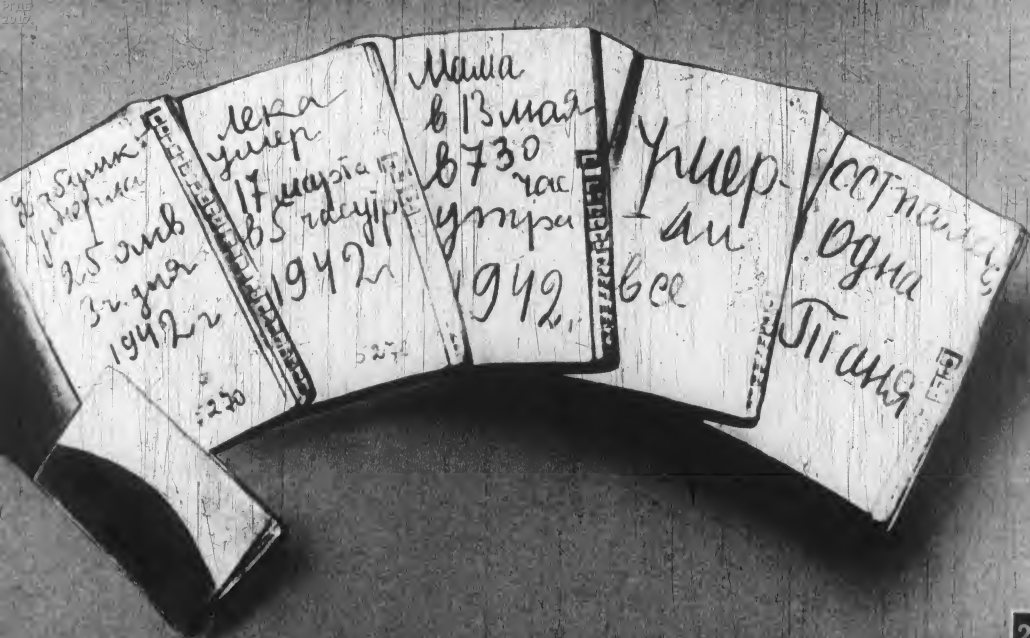 умерла
25 янв
3 ч. дня
1942 г
270
Лека
умер
17 марта
в 5 часутр
1942г
270
Мама
в 13 мая
в 730
час
утра
1942.
Умер-
ли
все
Осталась
одна
Таня